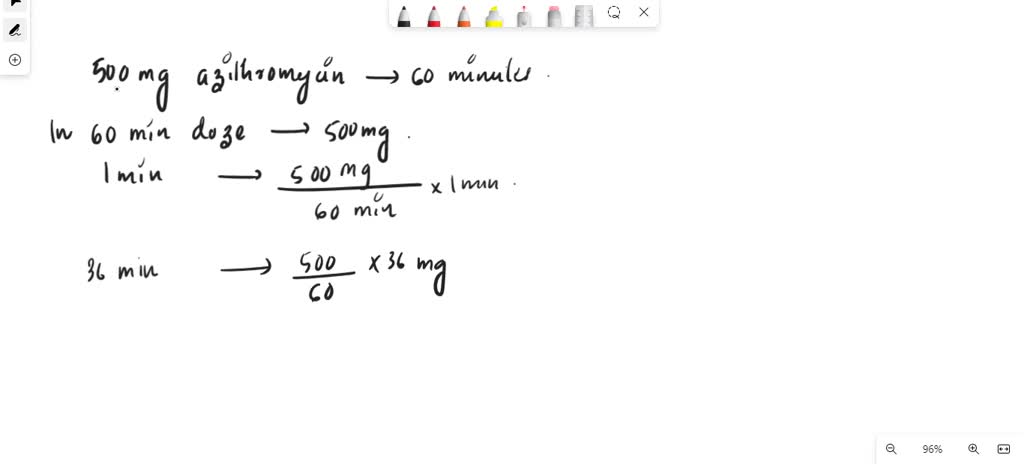 500 mg azithromycin → 60 minutes.
In 60 min doze → 500 mg.
1 min → 500 mg / 60 min × 1 min.
36 min → 500 / 60 × 36 mg
96%